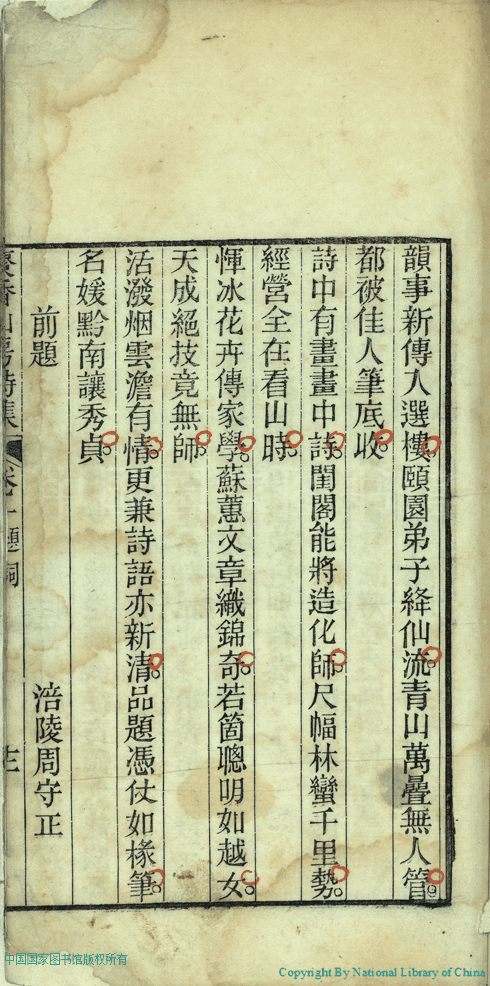 韻事新傳入選樓頤園弟子絳仙流青山萬疊無人管
都被佳人筆底收
詩中有畫畫中詩閨閣能將造化師尺幅林巒千里勢
經營全在看山時
惲冰花卉傳家學蘇蕙文章織錦奇若箇聰明如越女
天成絕技竟無師
活潑烟雲澹有情更兼詩語亦新清品題憑仗如椽筆
名媛黔南讓秀貞
前題 涪陵周守正
香山房詩集 卷一題詞
中国国家图书馆版权所有
Copyright By National Library of China